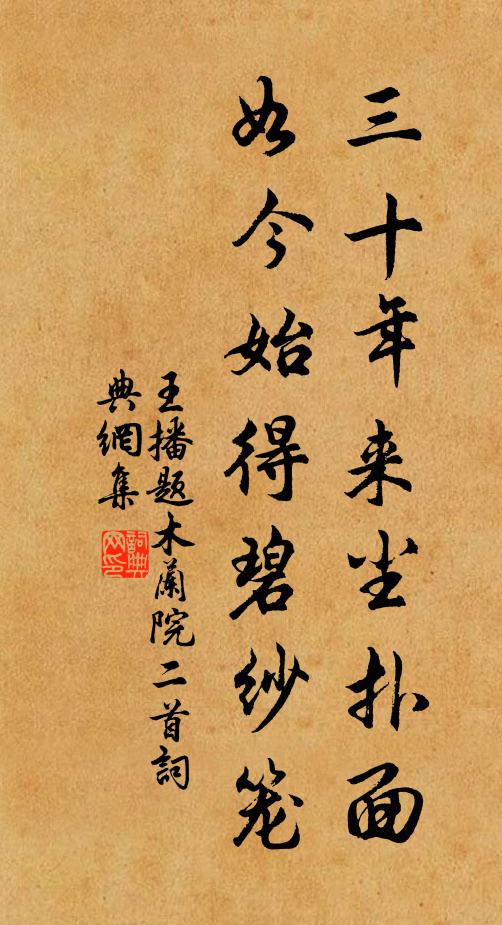 三十年来尘扑面
如今始得碧纱笼
王播题木蘭院二首詞
典網集
詞典
网印